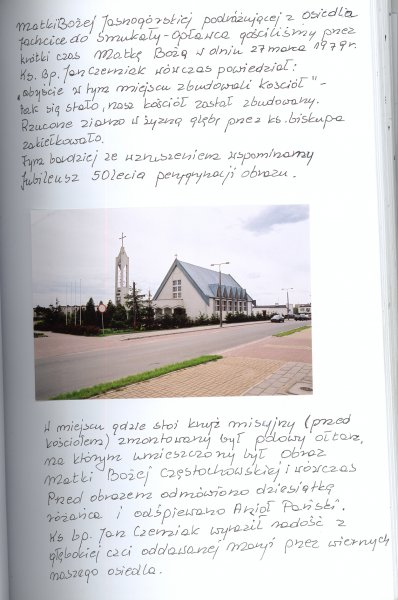 Matki Bożej Jasnogórskiej podróżującej z osiedla
Jachcice do Smukały-Opławca gościliśmy przez
krótki czas Matkę Bożą w dniu 27 marca 1979r.
Ks. Bp. Jan Czerniak wówczas powiedział:
„abyście w tym miejscu zbudowali kościół"-
tak się stało, nasz kościół został zbudowany.
Rzucone ziarno w żyzną glebę przez ks. biskupa
zakiełkowało.
Tym bardziej ze wzruszeniem wspominamy
Jubileusz 50lecia peregrynacji obrazu.
W miejscu gdzie stoi krzyż misyjny (przed
kościołem) zmontowany był polowy ołtarz,
na którym umieszczony był obraz
Matki Bożej Częstochowskiej i wówczas
Przed obrazem odmówiono dziesiątkę
różańca i odśpiewano Anioł Pański".
Ks. bp. Jan Czerniak wyraził radość z
głębokiej czci oddawanej Maryi przez wiernych
naszego osiedla.